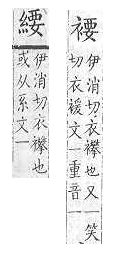 䙅
伊消切衣襻也又一笑
切衣褑文一重音一
𦃚
伊消切衣襻也
或从系文一